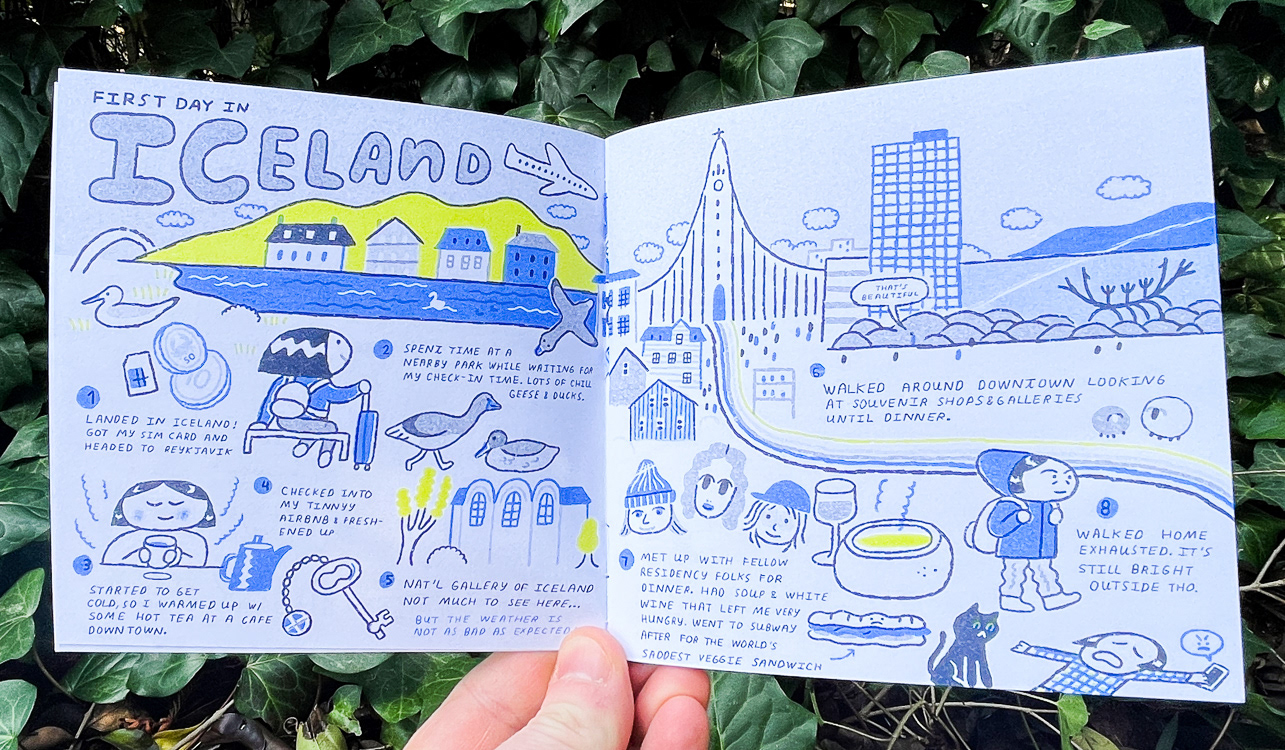 FIRST DAY IN
ICELAND
1
LANDED IN ICELAND!
GOT MY SIM CARD AND
HEADED TO REYKJAVIK
2
SPENT TIME AT A
NEARBY PARK WHILE WAITING FOR
MY CHECK-IN TIME. LOTS OF CHILL
GEESE & DUCKS.
3
STARTED TO GET
COLD, SO I WARMED UP W/
SOME HOT TEA AT A CAFE
DOWNTOWN.
4
CHECKED INTO
MY TINNYY
AIRBNB & FRESH-
ENED UP
5
NAT'L GALLERY OF ICELAND
NOT MUCH TO SEE HERE...
BUT THE WEATHER IS
NOT AS BAD AS EXPECTED
THAT'S
BEAUTIFUL
6
WALKED AROUND DOWNTOWN LOOKING
AT SOUVENIR SHOPS & GALLERIES
UNTIL DINNER.
7
MET UP WITH FELLOW
RESIDENCY FOLKS FOR
DINNER. HAD SOUP & WHITE
WINE THAT LEFT ME VERY
HUNGRY. WENT TO SUBWAY
AFTER FOR THE WORLD'S
SADDEST VEGGIE SANDWICH
8
WALKED HOME
EXHAUSTED. IT'S
STILL BRIGHT
OUTSIDE THO.